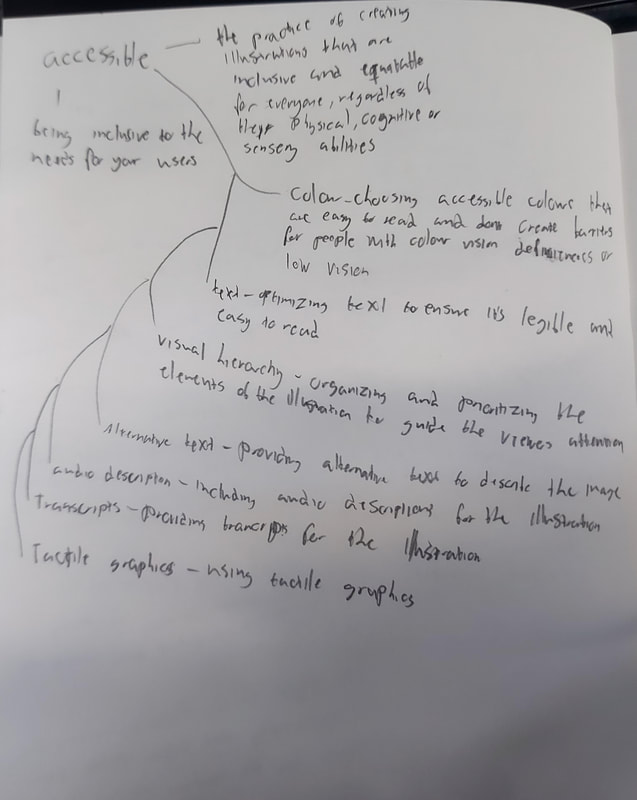 accessible
the practice of creating
illustrations that are
inclusive and equitable
for everyone, regardless of
physical, cognitive or
sensory abilities
being inclusive to the
needs for your users
Colour-choosing accessible colours that
are easy to read and dont create barriers
for people with colour vision or
low vision
text-optimizing text to ensure it's legible and
easy to read
visual hierarchy - organizing and prioritizing the
elements of the illustration to guide the viewers attention
Alternative text - providing alternative text to describe the image
audio description - including audio descriptions for the illustration
Transcripts - providing transcripts for the illustration
Tactile graphics - using tactile graphics